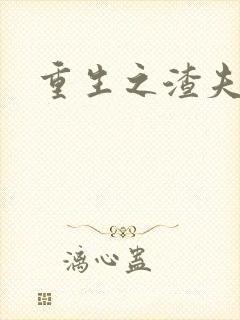 重生之渣夫
漓心蛊